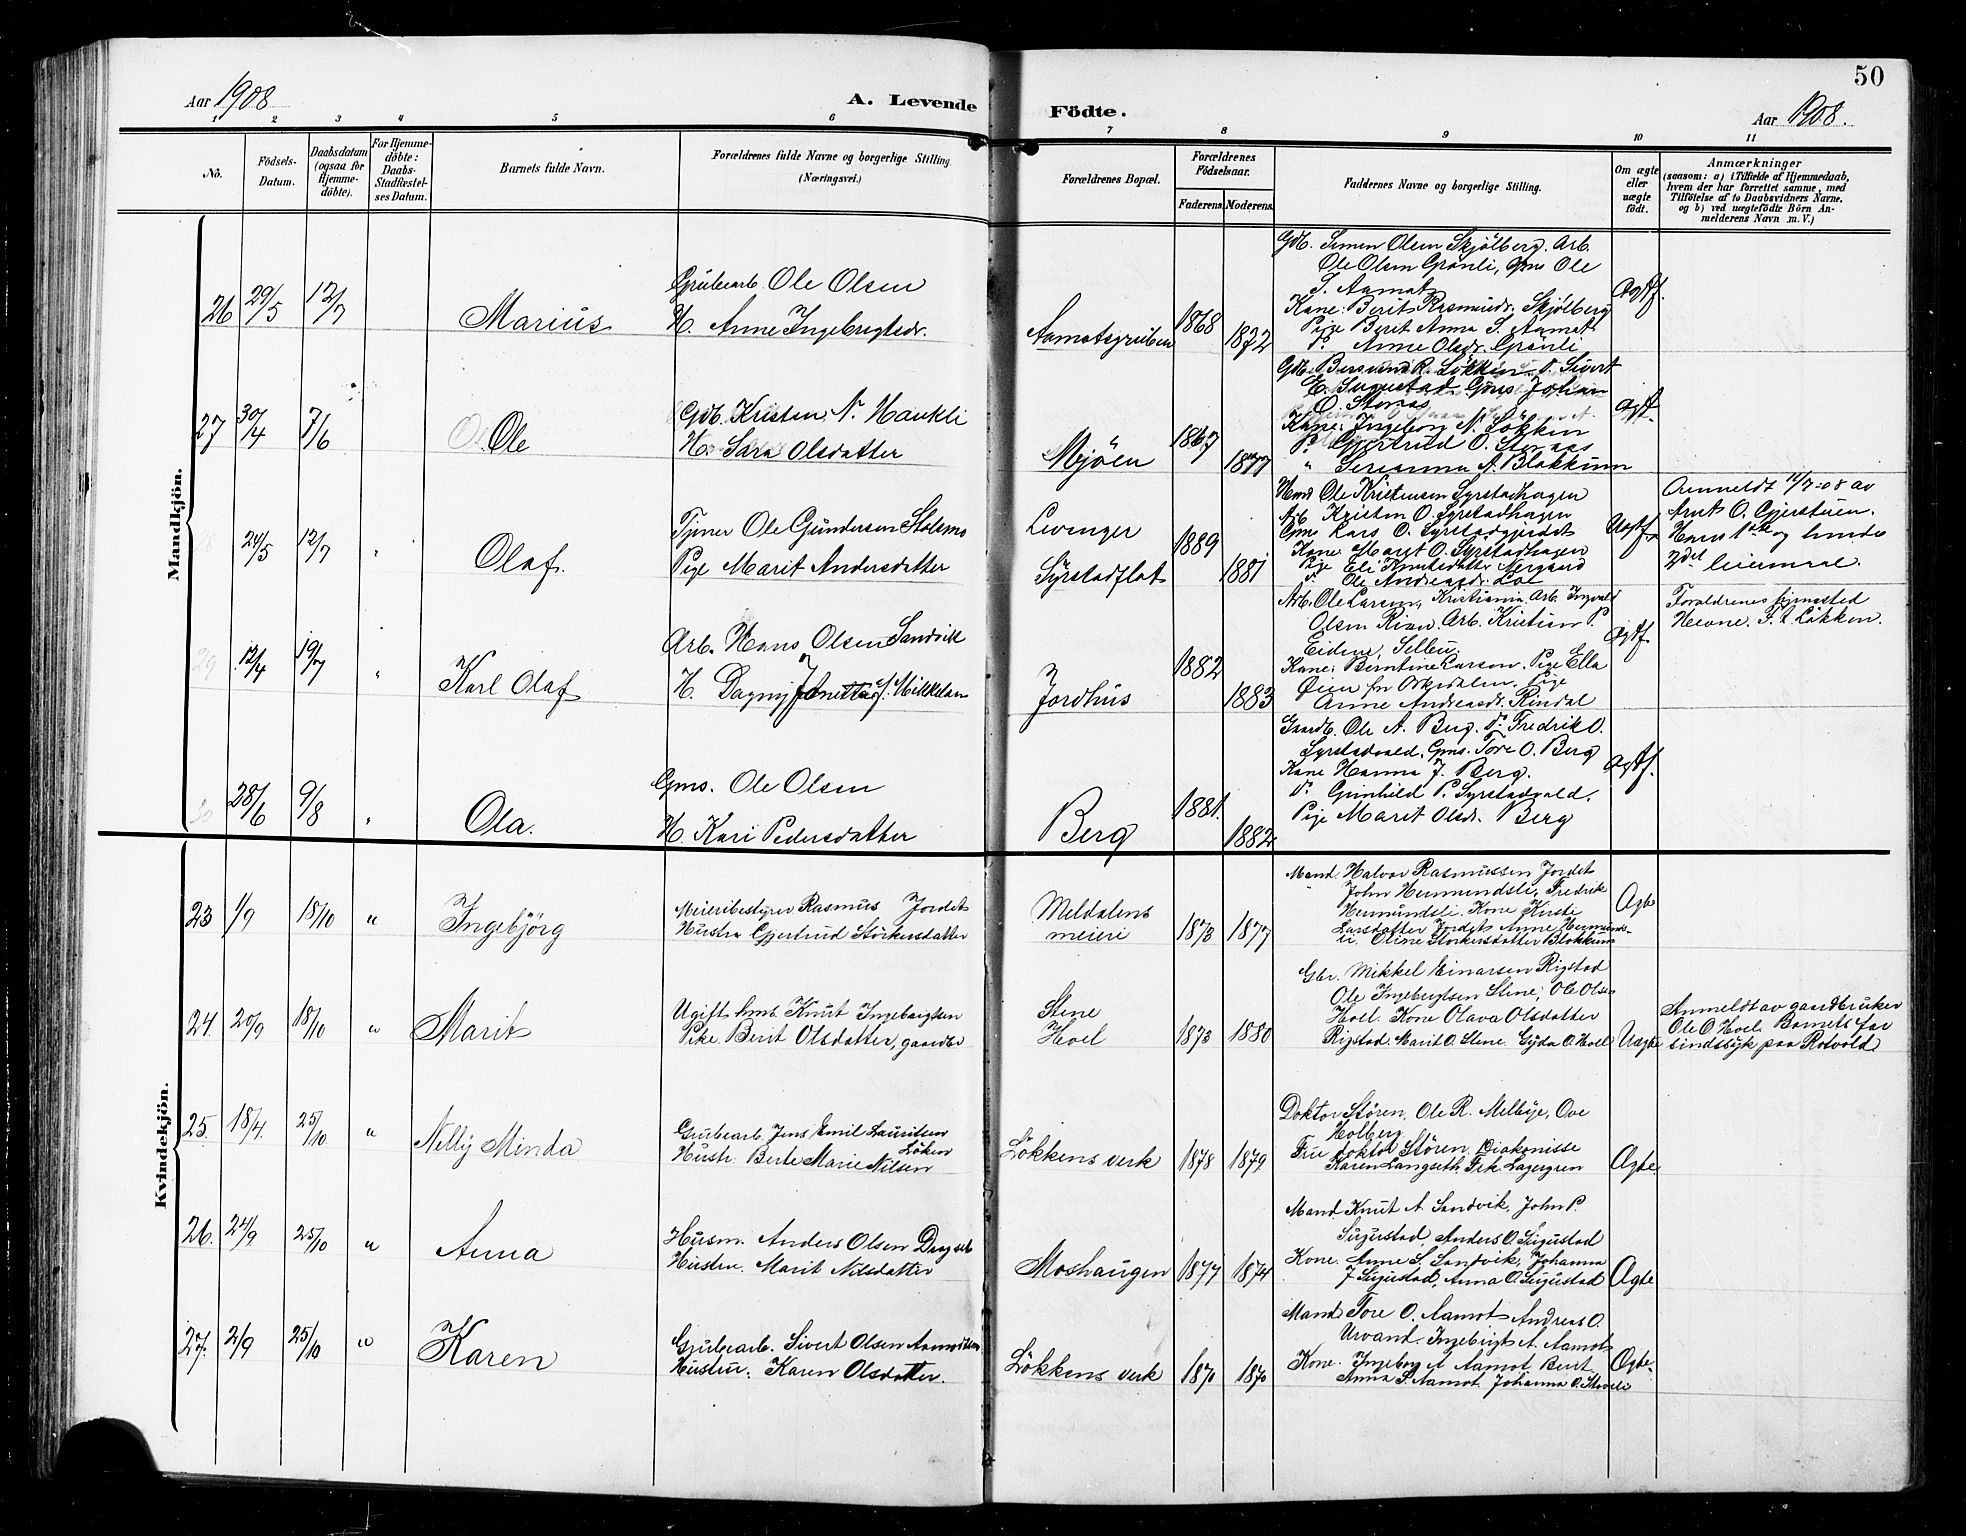 50
Aar 1908
A. Levende
Födte.
Aar 1908.
1 2 3 4 5 6 7 8 9 10 11
No.
Födsels-
Datum.
Daabsdatum
(ogsaa for
Hjemme-
döbte).
For Hjemme-
döbte:
Daabs-
Stadfæstel-
ses Datum.
Barnets fulde Navn.
Forældrenes fulde Navne og borgerlige Stilling.
(Næringsvei.)
Forældrenes Bopæl.
Forældrenes
Födselsaar.
Faderens. Moderens.
Faddernes Navne og borgerlige Stilling.
Om ægte
eller
uægte
født.
Anmærkninger
(saasom: a) i Tilfælde af Hjemmedaab,
hvem der har forrettet samme, med
Tilføielse af to Daabsvidners Navne,
og b) ved uægtefödte Börn An-
melderens Navn m. V.)
Mandkjön.
26 29/5 12/7
Marius
Grubearb. Ole Olsen
H. Anne Ingebrigtsdr.
Aamotsgruben
1868
1872
Gdb. Simen Olsen Skjölberg. Arb.
Ole Olsen Grönli, Gms Ole
S. Aamot
Kane: Berit Rasmusdr. Skjölberg
Pige Berit Anna S. Aamot
Anne Olsdr. Grönli
Ægtf.
27 30/4 7/6
Ole
Gdb. Kristen N. Haukli
H. Sara Olsdatter
Mjöen
1867
1877
Gdb. Bersvend R. Lökken. Sivert
E. Sugustad Gms Johan
O. Stenas
Kane: Ingeborg N. Lökken
Gjertrud O. Stenaas
" A. Blokkum
Ægtf.
28 24/5 12/7 "
Olaf.
Tjener Ole Gundersen
Pige Marit Andersdatter
Levanger
Syrstadflat
1889
1881
Ole Kristensen Syrstadhagen
Arb. Kristen O. Syrstadhagen
Gms Lars O. Syrstadgjerdet
Kane Maret O. Syrstadhagen
Pige Eli Knutsdatter Nergaard
Ole Andreasdr. Loe
Uægtf.
Anmeldt 11/7-08 av
Arnt O. Gjerstuen.
Hans 1ste og hendes
2det leiermaal.
29 12/4 19/7 "
Karl Olaf
Arb. Hans Olsen Sandvik
H. Dagny Mikkelsen
Jordhus
1882
1883
Arb. Ole Larsen, Kristiania Arb. Ingvald
Olsen Rian, Arb. Kristian P.
Eidene, Selbu.
Kane: Berntine Larsen. Pige Ella
Öien fra Orkedalen. Pige
Anne Andreasdr. Rindal
Ægtf.
Forældrenes hjemsted
Lökken.
30 28/6 9/8 "
Ola.
Gms. Ole Olsen
H. Kari Pedersdatter
Berg
1881.
1882
Gaardb. Ole A. Berg. Fredrik O.
Syrstadvald. Gms. Tore O. Berg
Kane Hanna J. Berg.
Gunhild P. Syrstadvald.
Pige Marit Olsdr. Berg
Ægtf.
Kvindekjön.
23 1/9 18/10 "
Ingebjörg
Meieribestyrer Rasmus Jordet
Hustru Gjertrud Störkersdatter
Meldalens
meieri
1873 1877
Mand Halvor Rasmussen Jordet
John Hermundsli, Fredrik
Hermundsli. Kone Kirste
Larsdatter Jordet Anne Hermunds-
li, Oline Storkersdatter Blokkum
Ægte
24 20/9 18/10 "
Marit
Ugift Knut Ingebrigtsen
Pike Berit Olsdatter, gaardbr
Stene
Hoel
1873 1880
Gbr. Mikkel Einarsen Rigstad
Ole Ingebrigtsen Stene, Ole Olsen
Hoel. Kone Olava Olsdatter
Rigstad. Marit O. Stene. Gyda O. Hoel
Uægte
Anmeldt av gaardbruker
Ole O. Hoel. Barnets far
sindssyk paa Rotvold
25. 18/4. 25/10 "
Nelly Minda
Grubearb. Jens Emil Lauritsen
Löken
Hustr. Berte Marie Nilsen
Lökkens verk
1878 1879
Doktor Stören, Ole R. Melbye, Ove
Holberg
Frue doktor Stören, Diakonisse
Karen Langseth. Frk. Lagergren
Ægte.
26. 24/9 25/10 "
Anna
Husm. Anders Olsen Dragset
Hustru. Marit Nilsdatter
Moshaugen
1877 1874
Mand Knut A. Sandvik, John P.
Sugustad, Anders O. Sugustad
Kone. Anne S. Sandvik, Johanna
J Sugustad, Anna O. Sugustad
Ægte
27. 2/9 25/10 "
Karen
Grubearb. Sivert Olsen
Hustru. Karen Olsdatter.
Lökkens verk
1870 1870
Mand Tore O. Aamot Andreas O.
Urvand, Ingebrigt A. Aamot
Kone. Ingeborg A Aamot Berit
Anna S. Aamot. Johanna O. Stoveli
Ægte.